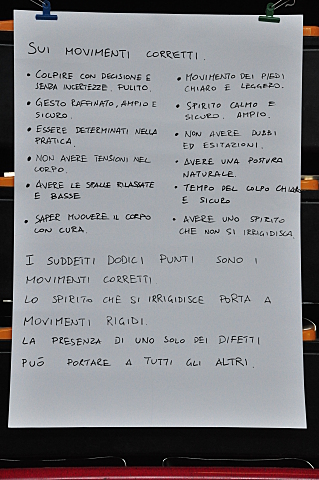 SUI MOVIMENTI CORRETTI.
• COLPIRE CON DECISIONE E
SENZA INCERTEZZE, PULITO.
• GESTO RAFFINATO, AMPIO E
SICURO.
• ESSERE DETERMINATI NELLA
PRATICA.
• NON AVERE TENSIONI NEL
CORPO.
• AVERE LE SPALLE RILASSATE
E BASSE
• SAPER MUOVERE IL CORPO
CON CURA.
• MOVIMENTO DEI PIEDI
CHIARO E LEGGERO.
• SPIRITO CALMO E
SICURO. AMPIO.
• NON AVERE DUBBI
ED ESITAZIONI.
• AVERE UNA POSTURA
NATURALE.
• TEMPO DEL COLPO CHIARO
E SICURO
• AVERE UNO SPIRITO
CHE NON SI IRRIGIDISCA
I SUDDETTI DODICI PUNTI SONO I
MOVIMENTI CORRETTI
LO SPIRITO CHE SI IRRIGIDISCE PORTA A
MOVIMENTI RIGIDI.
LA PRESENZA DI UNO SOLO DEI DIFETTI
PUÒ PORTARE A TUTTI GLI ALTRI.